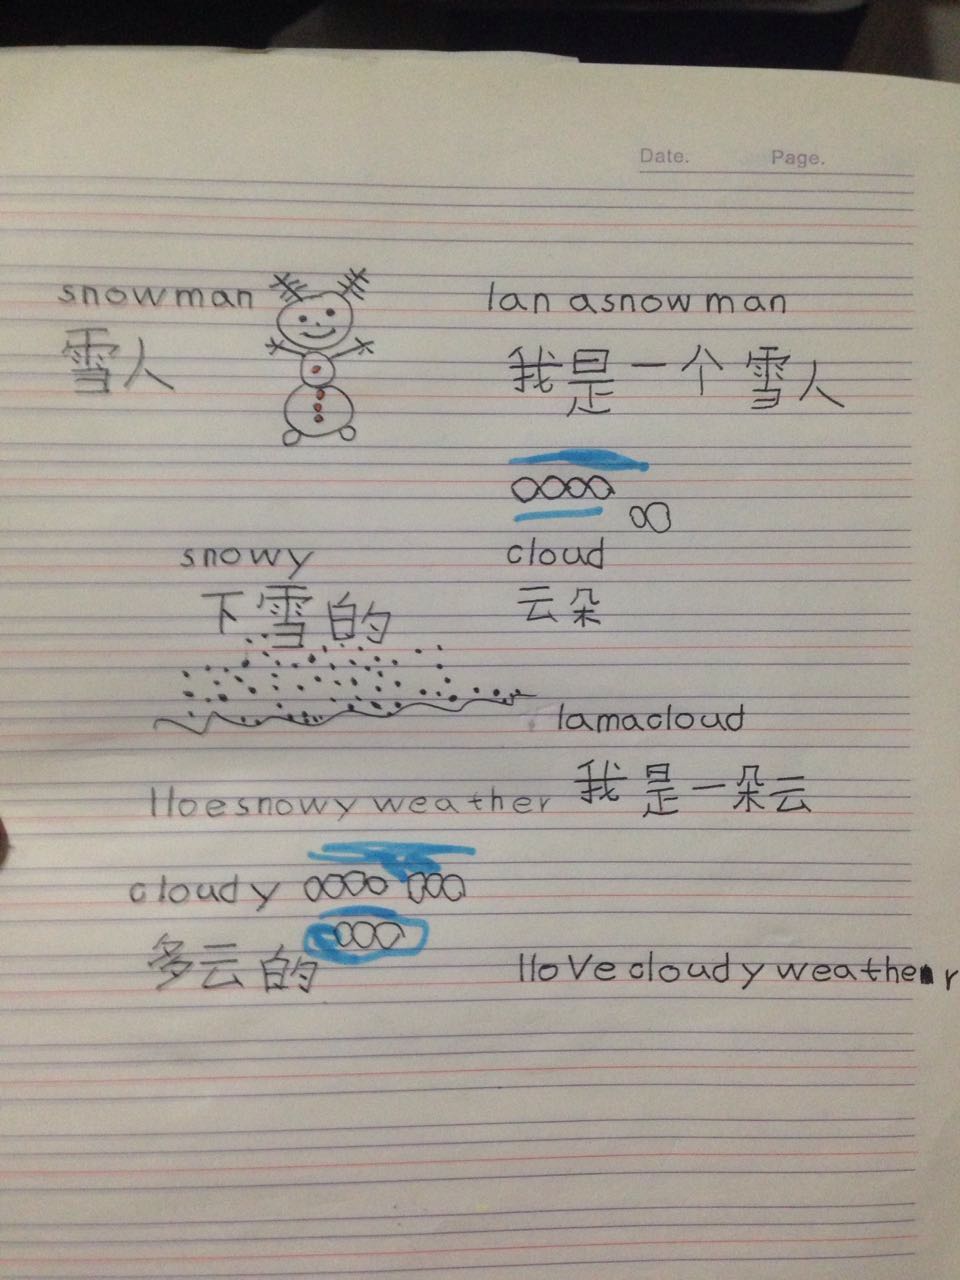 Date. Page.
snowman
Ian asnowman
雪人
我是一个雪人
snowy
cloud
下雪的
云朵
Iamacloud
Iloesnowyweather
我是一朵云
cloudy
多云的
Ilovecloudyweather